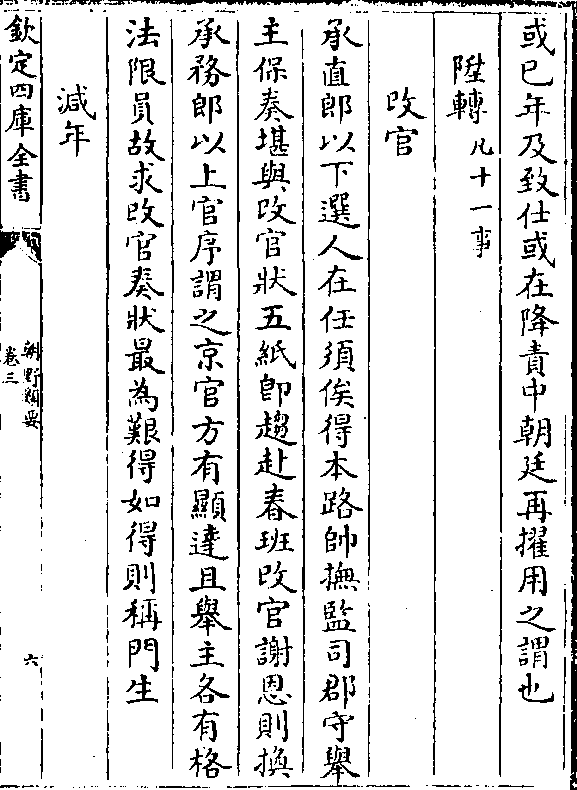 或已年及致仕或在降責中朝廷再擢用之謂也
陞轉凡十一事
改官
承直郎以下選人在任須俟得本路帥撫監司郡守舉
主保奏堪與改官狀五紙即趨赴春班改官謝恩則換
承務郎以上官序謂之京官方有顯達且舉主各有格
法限員故求改官奏狀最為艱得如得則稱門生
減年
欽定四庫全書
朝野類要
卷三
六